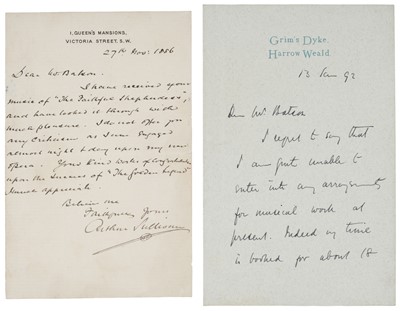 1, QUEEN'S MANSIONS,
VICTORIA STREET, S.W.
27th Nov: 1886
Dear Mr Batson.
I have received your
music of "The Faithful Shepherdess",
and have looked it through with
much pleasure. I do not offer you
any criticism as I am engaged
almost night & day upon my new
opera. Your kind words of
upon the success of "The Golden Legend"
I much appreciate.
Believe me
Faithfully yours
Arthur Sullivan
Grim's Dyke,
Harrow Weald.
12 92
Dear Mr Batson
I regret to say that
I am quite unable to
enter into any arrangements
for musical work at
present. Indeed my time
is booked for about 18